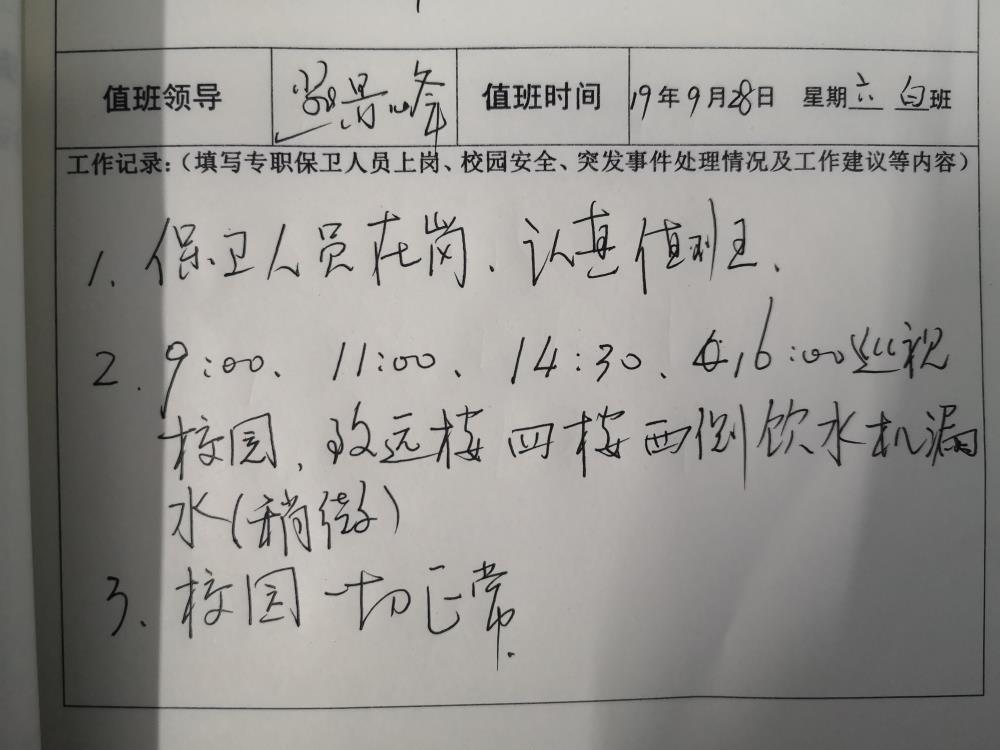 值班领导 景峰 值班时间 19年9月28日 星期六 白班
工作记录:(填写专职保卫人员上岗、校园安全、突发事件处理情况及工作建议等内容)
1. 保卫人员在岗、认真值班.
2. 9:00、11:00、14:30、16:00巡视
校园、致远楼四楼西侧饮水机漏
水(稍微)
3、校园一切正常.